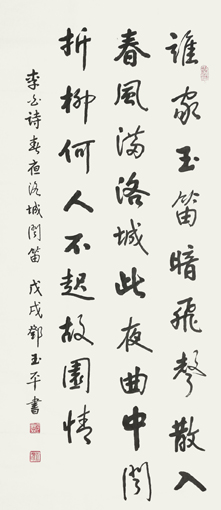 誰家玉笛暗飛聲散入
春風滿洛城此夜曲中聞
折柳何人不起故園情
李白詩春夜洛城聞笛 戊戌鄧玉平書